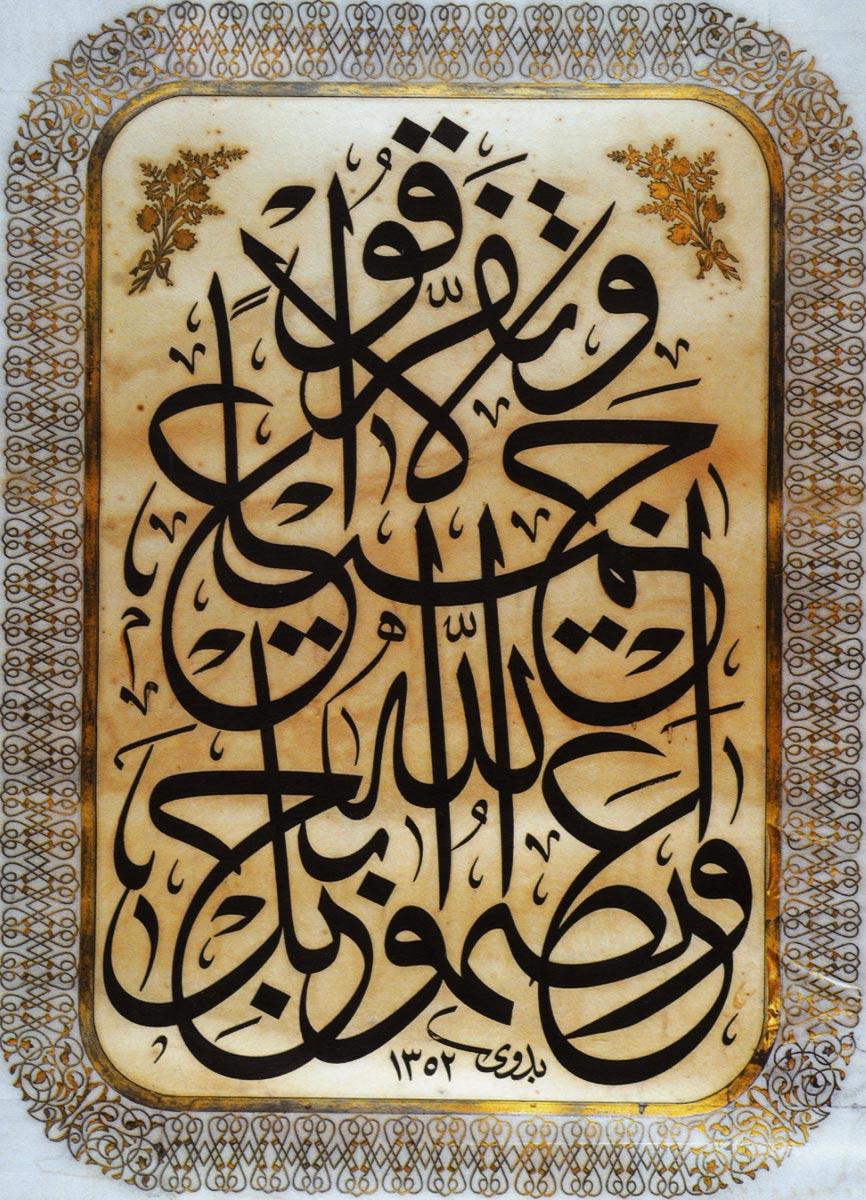 واعتصموا بحبل
الله جميعاً
ولا تفرّقوا
بدوى ١٣٥٢